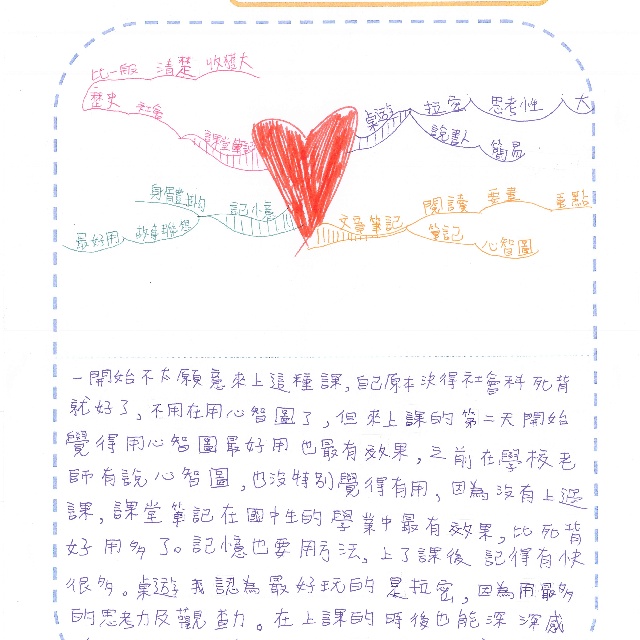 比一般 清楚 收穫大
歷史 社會
課堂筆記
桌遊 拉密 思考性 大
說書人 簡易
身體掛鉤 記憶
最好用 故事聯想
文章筆記 閱讀 要畫 重點
筆記 心智圖
一開始不太願意來上這種課,自己原本決得社會科死背
就好了,不用在用心智圖了,但來上課的第二天開始
覺得用心智圖最好用也最有效果,之前在學校老
師有說心智圖,也沒特別覺得有用,因為沒有上過
課,課堂筆記在國中生的學業中最有效果,比死背
好用多了。記憶也要用方法,上了課後記得有快
很多。桌遊我認為最好玩的是拉密,因為用最多
的思考力及觀查力。在上課的時後也能深深感